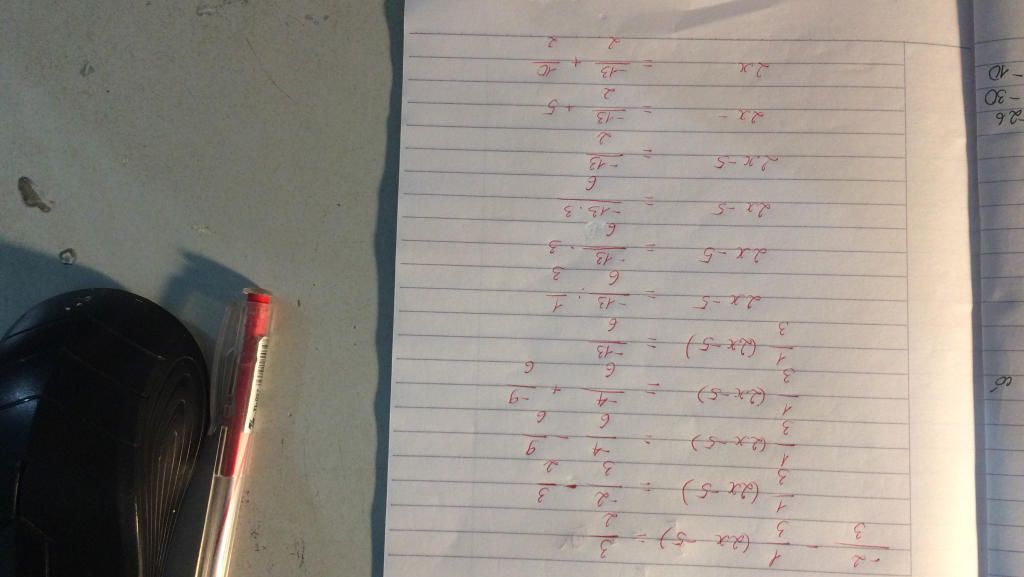 -2/3 - 1/3 (2x - 5) = 3/2
1/3 (2x-5) = -2/3 - 3/2
1/3 (2x-5) = -4/6 - 9/6
1/3 (2x-5) = -4/6 + -9/6
1/3 (2x-5) = -13/6
2x-5 = -13/6 : 1/3
2x-5 = -13/6 . 3
2x-5 = -13.3/6
2x-5 = -13/2
2x - = -13/2 + 5
2x = -13/2 + 10/2
-26
-30
-10